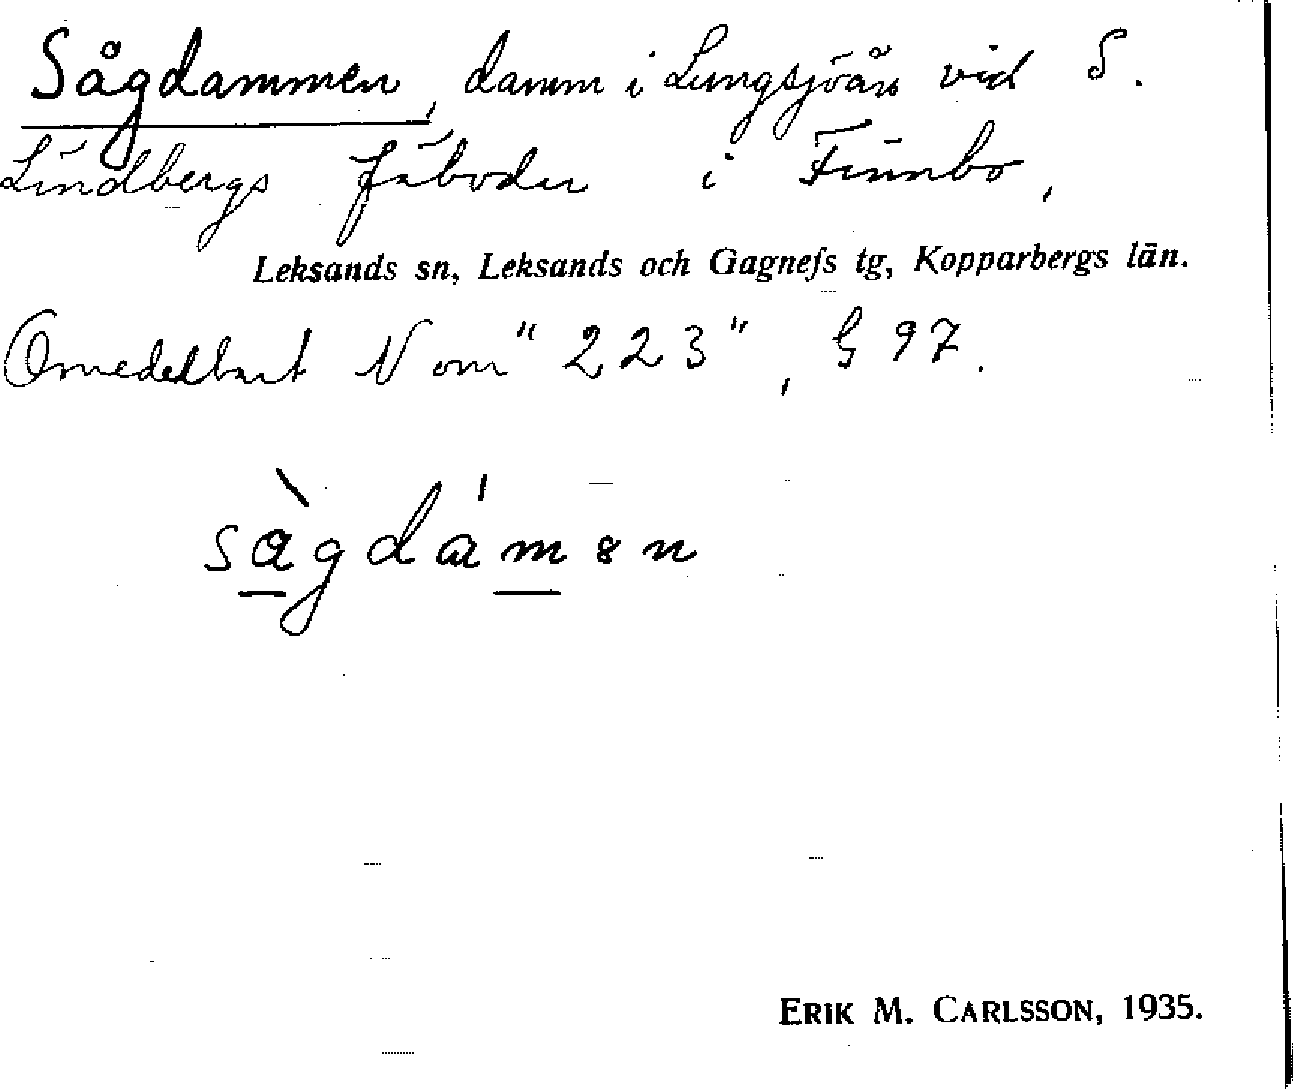 Sågdammen, damm i Lungsjöån vid S.
Lindbergs fäbodar i Finnbo,
Leksands sn, Leksands och Gagnefs tg, Kopparbergs län.
Omedelbart N om "223", G 97.
sàgdámən
ERIK M. CARLSSON, 1935.